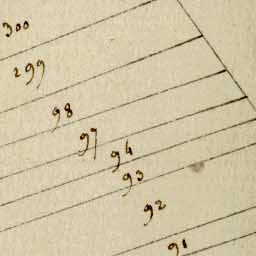 300
299
98
97
94
93
92
91